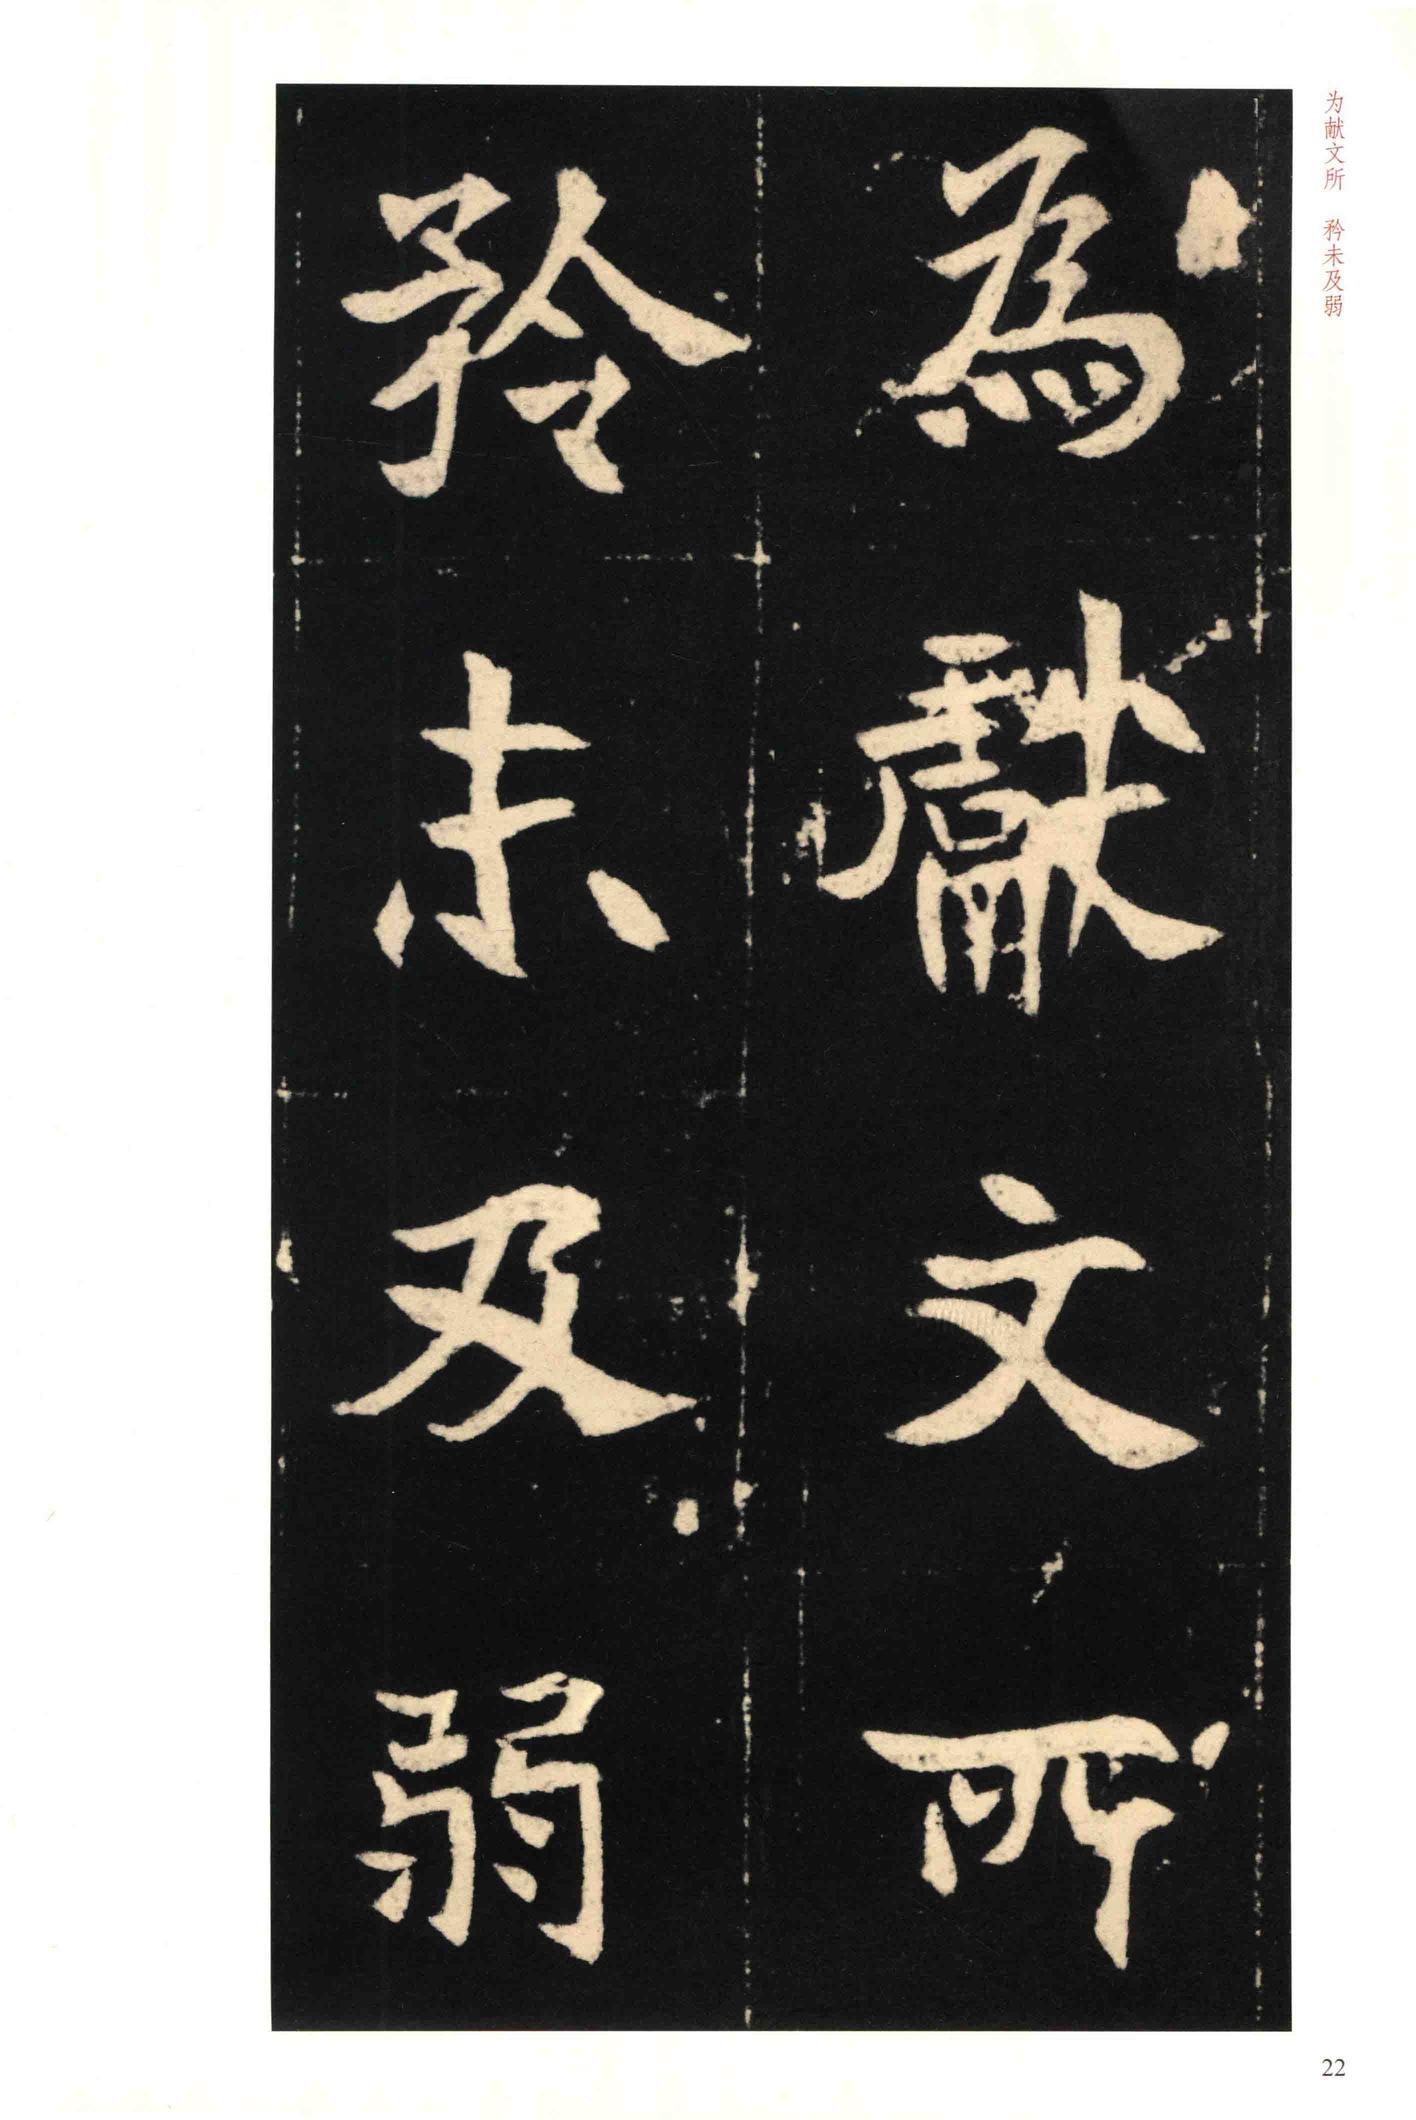 为献文所 矜未及弱
為獻文所
矜未及弱
22